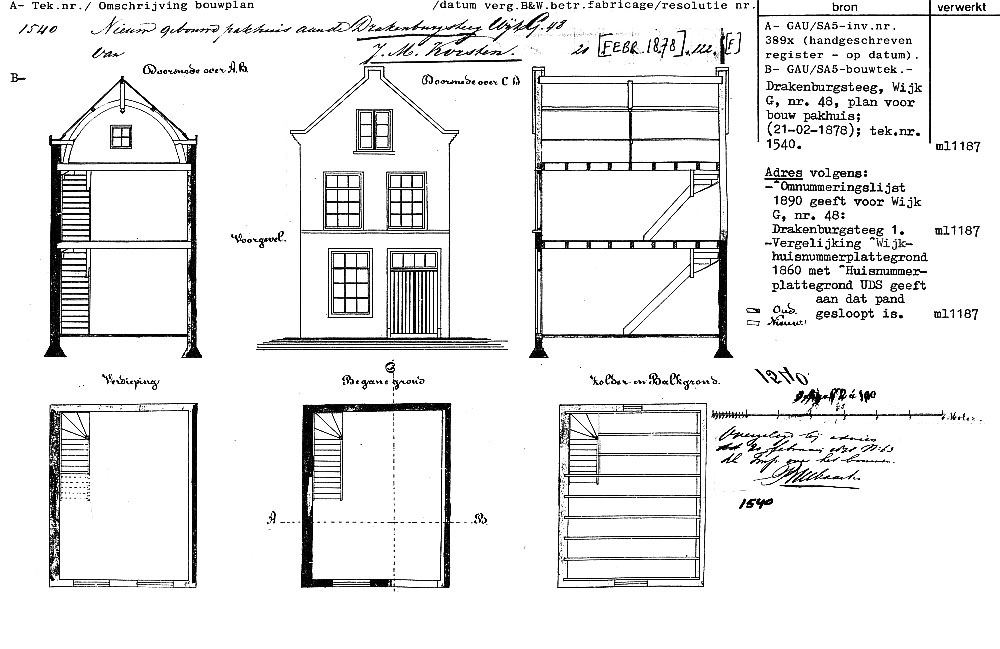 A- Tek.nr./ Omschrijving bouwplan
/datum verg.B&W.betr.fabricage/resolutie nr.
bron
verwerkt
1540 Nieuw gebouwd pakhuis aan de Drakenburgsteeg Wijk G. 48
van J. M. Korsten.
21 [FEBR. 1878]
[F]
B-
Doorsnede over A.B.
Doorsnede over C D
Voorgevel.
A- GAU/SA5-inv.nr.
389x (handgeschreven
register - op datum).
B- GAU/SA5-bouwtek.-
Drakenburgsteeg, Wijk
G, nr. 48, plan voor
bouw pakhuis;
(21-02-1878); tek.nr.
1540.
ml1187
Adres volgens:
-^Omnummeringslijst
1890 geeft voor Wijk
G, nr. 48:
Drakenburgsteeg 1.
ml1187
-Vergelijking ^Wijk-
huisnummerplattegrond
1860 met ^Huisnummer-
plattegrond UDS geeft
aan dat pand
gesloopt is.
ml1187
Oud.
Nieuw.
Verdieping
Begane grond
Zolder en Balkgrond.
A
B
1540